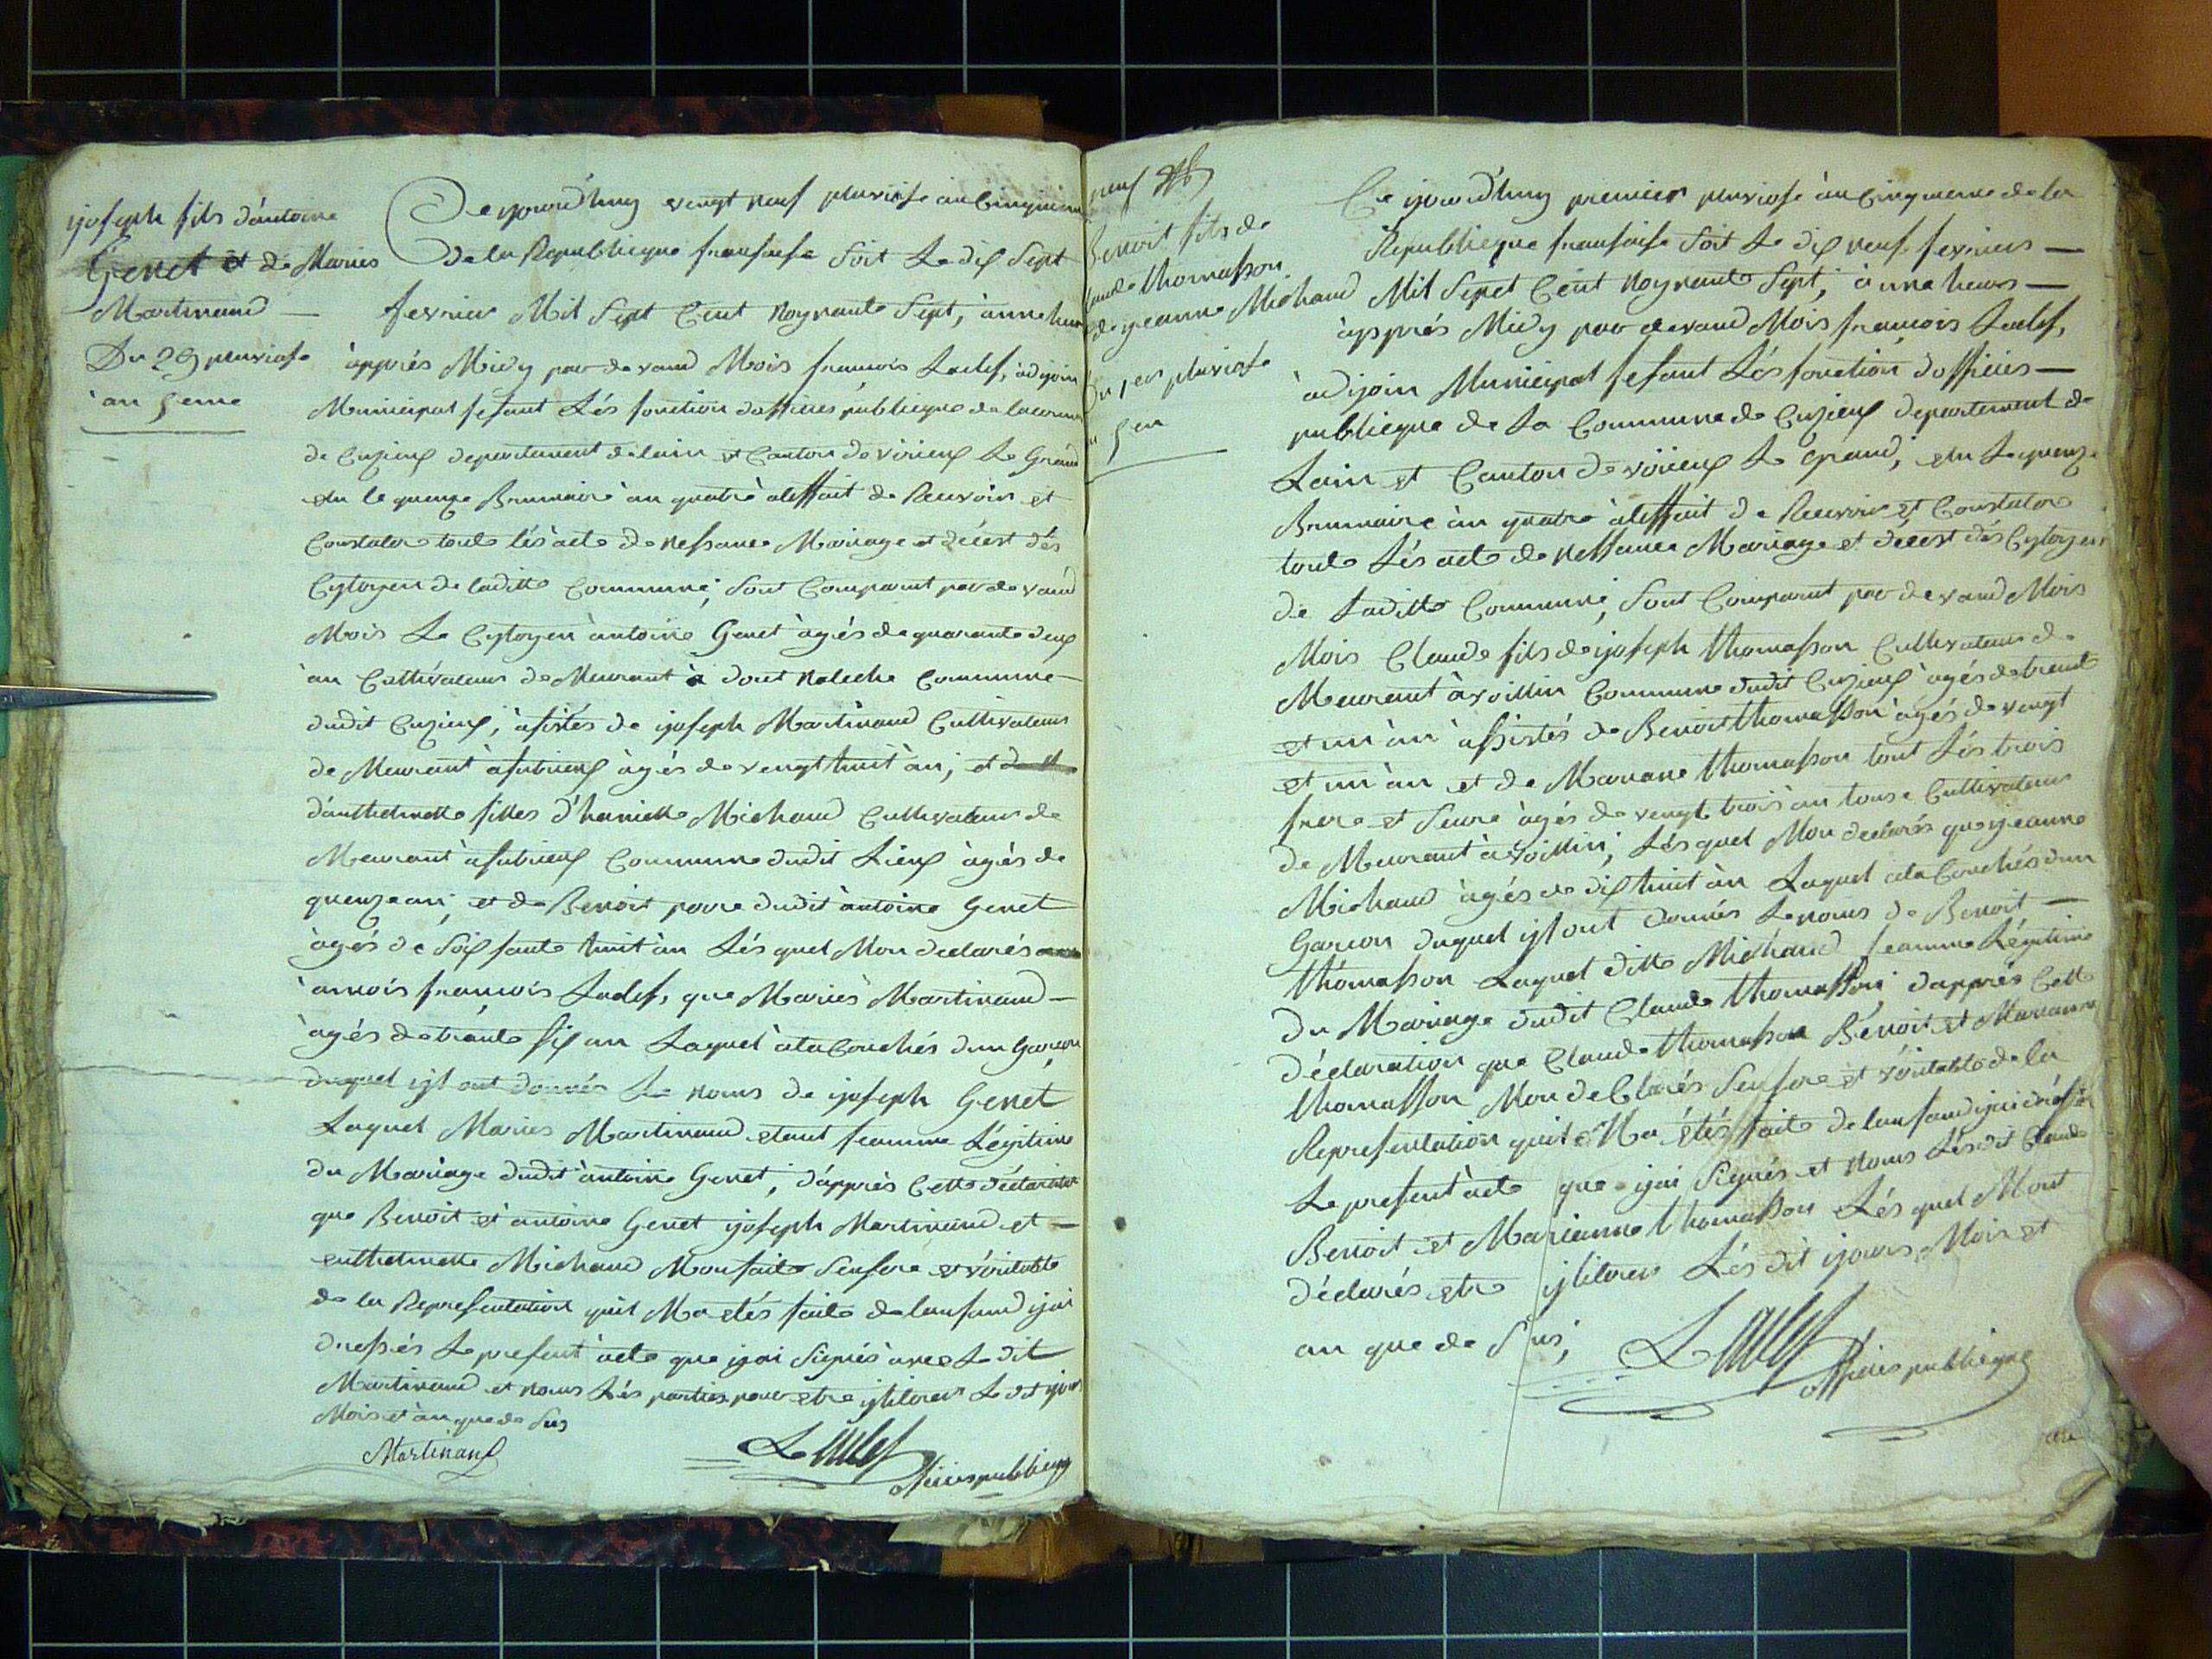 ijoseph fils d'antoine
Genet et de Maries
Martinand —
Du 29 pluviose
àn 5eme
Ce ijourd'huy vengt neuf pluviose àn Cinquieme
de la Republicque fransaise Soit Le dix Sept
fevrier Mil Sept Cent Noynante Sept, à une heur
àpprés Midy par devand Mois francois Ladef, àdijoin
Municipal fesant Lés fonction dofficies publicque de lacomune
de Cuzieux departement delain et Canton de virieux Le Grand
elu le quenze Brumaire àn quatre àleffait de Recevoir et
Constater toute lés acte de nessance Mariage et décest dés
Cytoyen de laditte Commune, Sont Comparut par devand
Mois Le Cytoyen àntoine Genet àgés de quarante deux
àn Cultivateur de Meurant à dont naleche Commune
dudit Cuzieux, àsistés de ijoseph Martinand Cultivateur
de Meurant àsutrieux àgés de vengt huit àn, et
d'anthelmette filles d'hanriette Michaud Cultivateur de
Meurant àsutrieux Commune dudit Lieux àgés de
quenze àn, et de Benoit perre dudit àntoine Genet
àgés de Soix sante huit àn Lés quel Mon declarés
àmois francois Ladef, que Mariés Martinand —
àgés de trante six an Laquel àlacouchés dun Garçon
duquel ijl ont donnés Le noms de ijoseph Genet
Laquel Maries Martinand etant feamme Légitime
du Mariage dudit àntoine Genet, d'apprés Cette déclaration
que Benoit et àntoine Genet ijoseph Martinand et —
enthelmette Michaud Mon faite Sensere et véritable
de la Representation quil Ma etés faite de lanfand ijai
dressés Le present àcte que ijai Signés àvec Le dit
Martinand et nous Lés parties pour etre ijliteres Le dit ijour
Mois et àn que de Sus
Martinand
Ladef officies publicque
neuf
Benoit fils de
Claude thomasson
de ijeanne Michaud
Du 1er pluviose
5em
Ce ijourd'huy premier pluviose àn Cinquieme de la
Republicque fransaise Soit Le dix neuf fevriers —
Mil Sepet Cent Noynante Sept, à une heurs —
àpprés Midy par devand Mois francois Ladef,
àdijoin Municipal fesant Lés fonction dofficies —
publicque de La Commune de Cuzieux departement de
Lain et Canton de virieux Le Grand, elu Le quenze
Brumaire àn quatre àleffait de Recevoir et Constater
toute Lés acte de nessance Mariage et décest dés Cytoyen
de Laditte Commune, Sont Comparut par devand Mois
Mois Claude fils de ijoseph thomasson Cultivateur de
Meurant àvoillin Commune dudit Cuzieux àgés de trente
et un àn àssistés de Benoit thomasson àgés de vengt
et un àn et de Mariane thomasson tout Lés trois
frere et Seure àgés de vengt trois àn tous Cultivateur
de Meurant àvoillin, Lés quel Mon declarés que ijeanne
Michaud àgés de dix huit àn Laquel àlaCouchés dun
Garcon duquel ijl ont donnés Le noms de Benoit —
thomasson Laquel ditte Michaud feamme Légitime
du Mariage dudit Claude thomasson d'apprés Cette
déclaration que Claude thomasson Benoit et Marianne
thomasson Mon deClarés Sensere et véritable de la
Representation quil Ma étés faite de lanfand ijai dréssés
Le present àcte que ijai Signés et nous Lés dit Claude
Benoit et Marianne thomasson Lés quel Mont
déclarés etre ijliteres Lés dit ijours Mois et
an que de Sus,
Ladef officies publicque